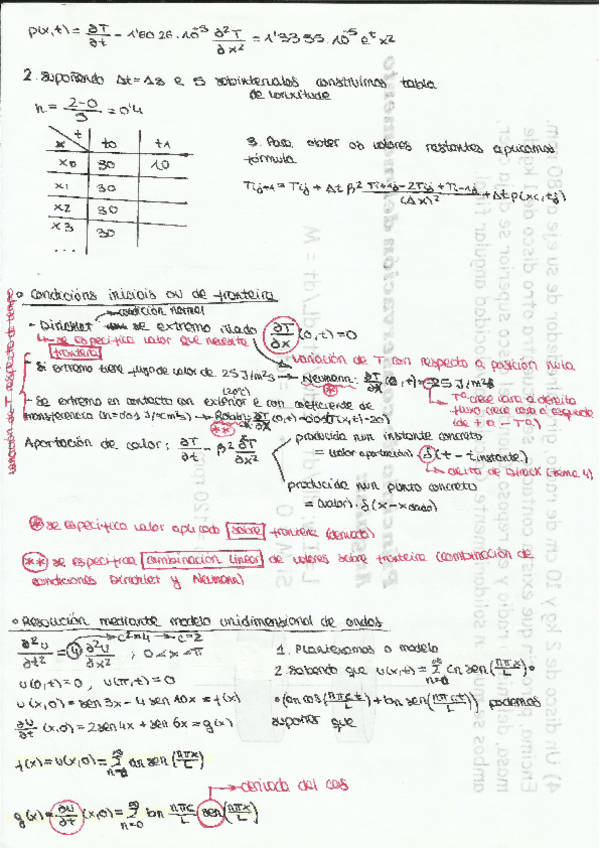 p(x,t) = ∂T/∂t − 1'6026·10⁻³ ∂²T/∂x² = 1'3335·10⁻⁵ eᵗ x²
2. Supoñendo Δt=1s e 5 subintervalos construímos tabla
de lonxitude
h = 2-0/5 = 0'4
x t t0 t1
x0 30 10
x1 30
x2 30
x3 30
...
3. Para obter os valores restantes aplicamos
fórmula
Tij+1 = Tij + Δt β² Ti+1j − 2Tij + Ti−1j/(Δx)² + Δt p(xi, tj)
• Condicións iniciais ou de fronteira
condición normal
- Dirichlet se extremo illado ∂T/∂x (0,t) = 0
se especifica valor que necesita
fronteira
variación de T con respecto a posición nula
- Si extremo ten fluxo de calor de 25 J/m²s → Neumann: ∂T/∂x (0,t) = −25 J/m²s
(20ºC)
- Se extremo en contacto con exterior e con coeficiente de
transferencia → Robin: ∂T/∂x (0,t)
Tª crece cara a dereita
fluxo crece cara a esquerda
(de + a − Tª)
variación de T respecto de tempo
Aportación de calor: ∂T/∂t − β² ∂²T/∂x²
producida nun instante concreto
= (valor aportación) · δ(t − t instante)
delta de Dirack (tema 4)
producida nun punto concreto
= (valor) · δ(x − x dado)
* se especifica valor aplicado sobre fronteira (derivada)
** se especifica combinación lineal de valores sobre fronteira (combinación de
condiciones Dirichlet y Neumann)
• Resolución mediante modelo unidimensional de ondas
c²=4 → c=2
∂²u/∂t² = 4 ∂²u/∂x² ; 0<x<π
u(0,t)=0 , u(π,t)=0
u(x,0) = sen 3x − 4 sen 10x = f(x)
∂u/∂t (x,0) = 2 sen 4x + sen 6x = g(x)
1. Planteamos o modelo
2. Sabendo que u(x,t) = ∞Σn=0 Cn sen(nπx/L)•
•(an cos(nπct/L) + bn sen(nπct/L)) podemos
supoñer que
f(x) = u(x,0) = ∞Σn=0 an sen(nπx/L)
derivada del cos
g(x) = ∂u/∂t (x,0) = ∞Σn=0 bn nπc/L sen(nπx/L)